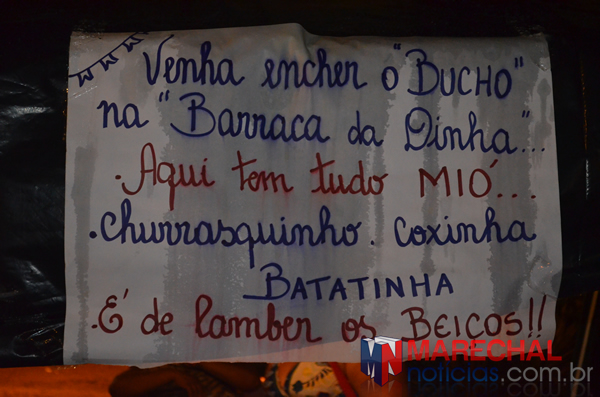 Venha encher o "BUCHO"
na "Barraca da Dinha"...
.Aqui tem tudo MIÓ...
.churrasquinho. coxinha
BATATINHA
.É de lamber os BEICOS!!
MN MARECHAL
notícias.com.br